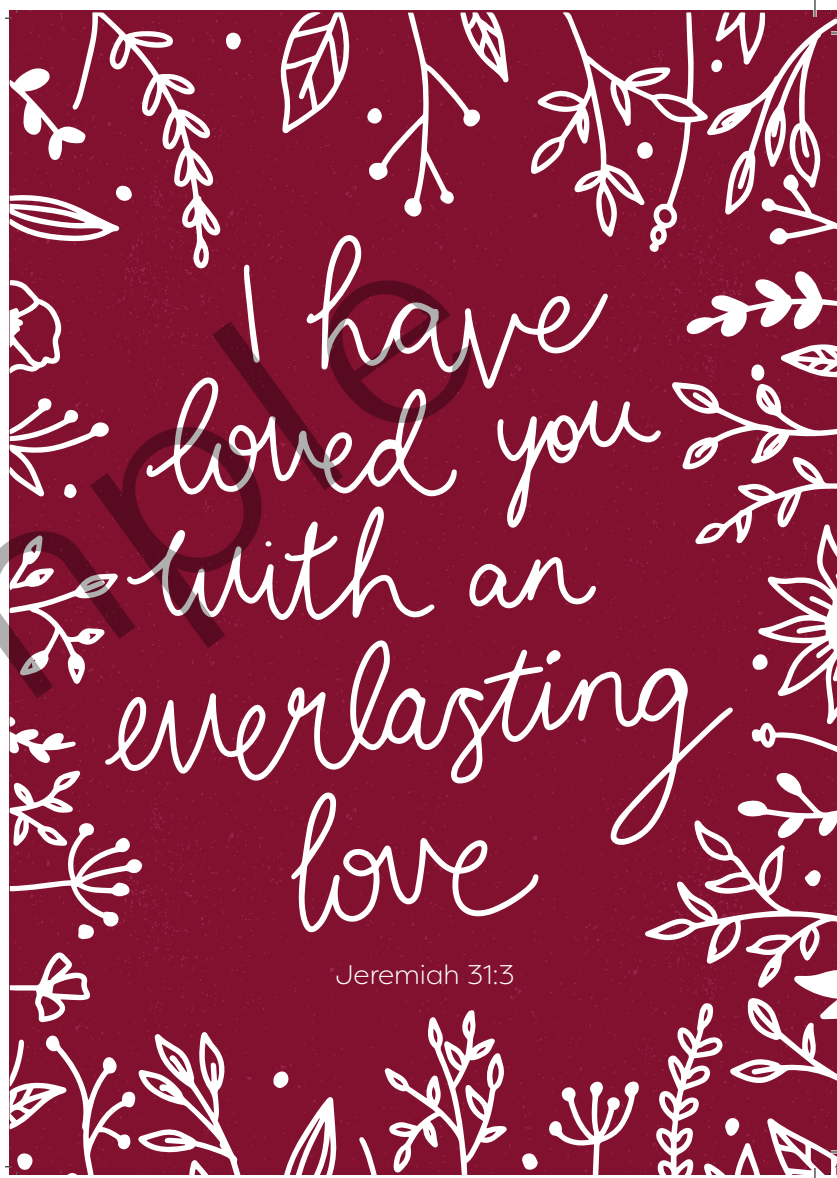 I have
loved you
with an
everlasting
love
Jeremiah 31:3
mple